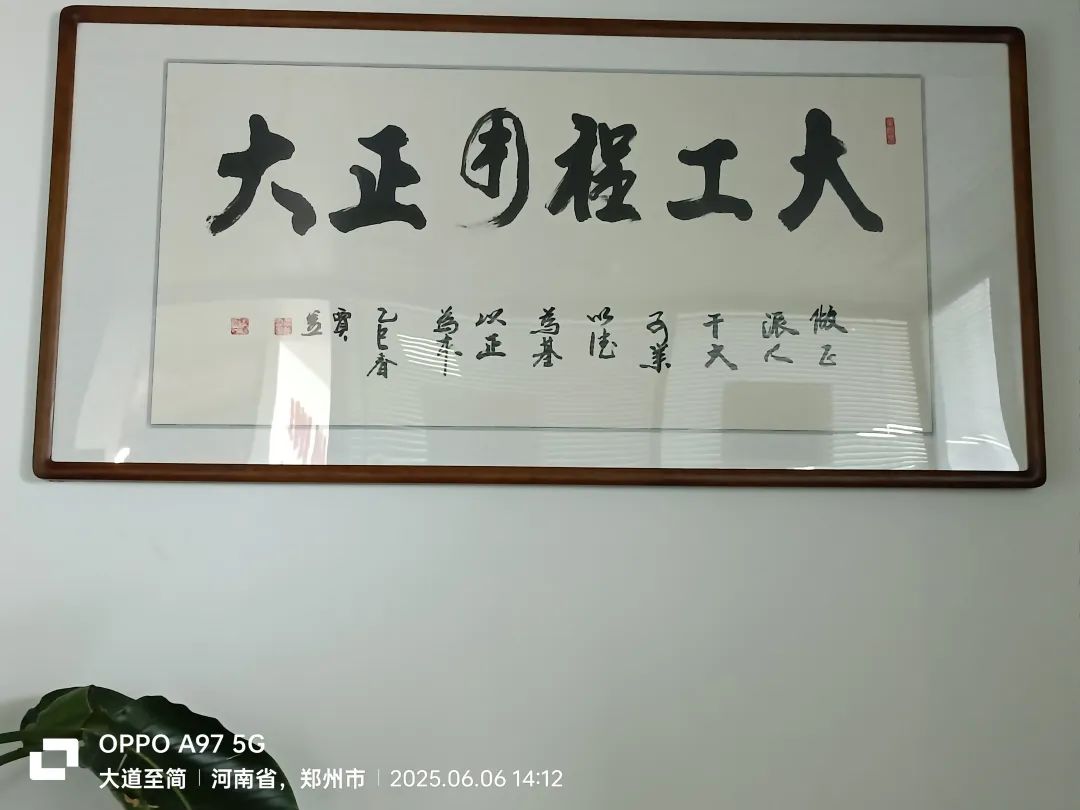 大工程正大
做正
派人
干大
事業
以德
為基
以正
為本
乙巳春
寶
OPPO A97 5G
大道至简 | 河南省，郑州市 | 2025.06.06 14:12